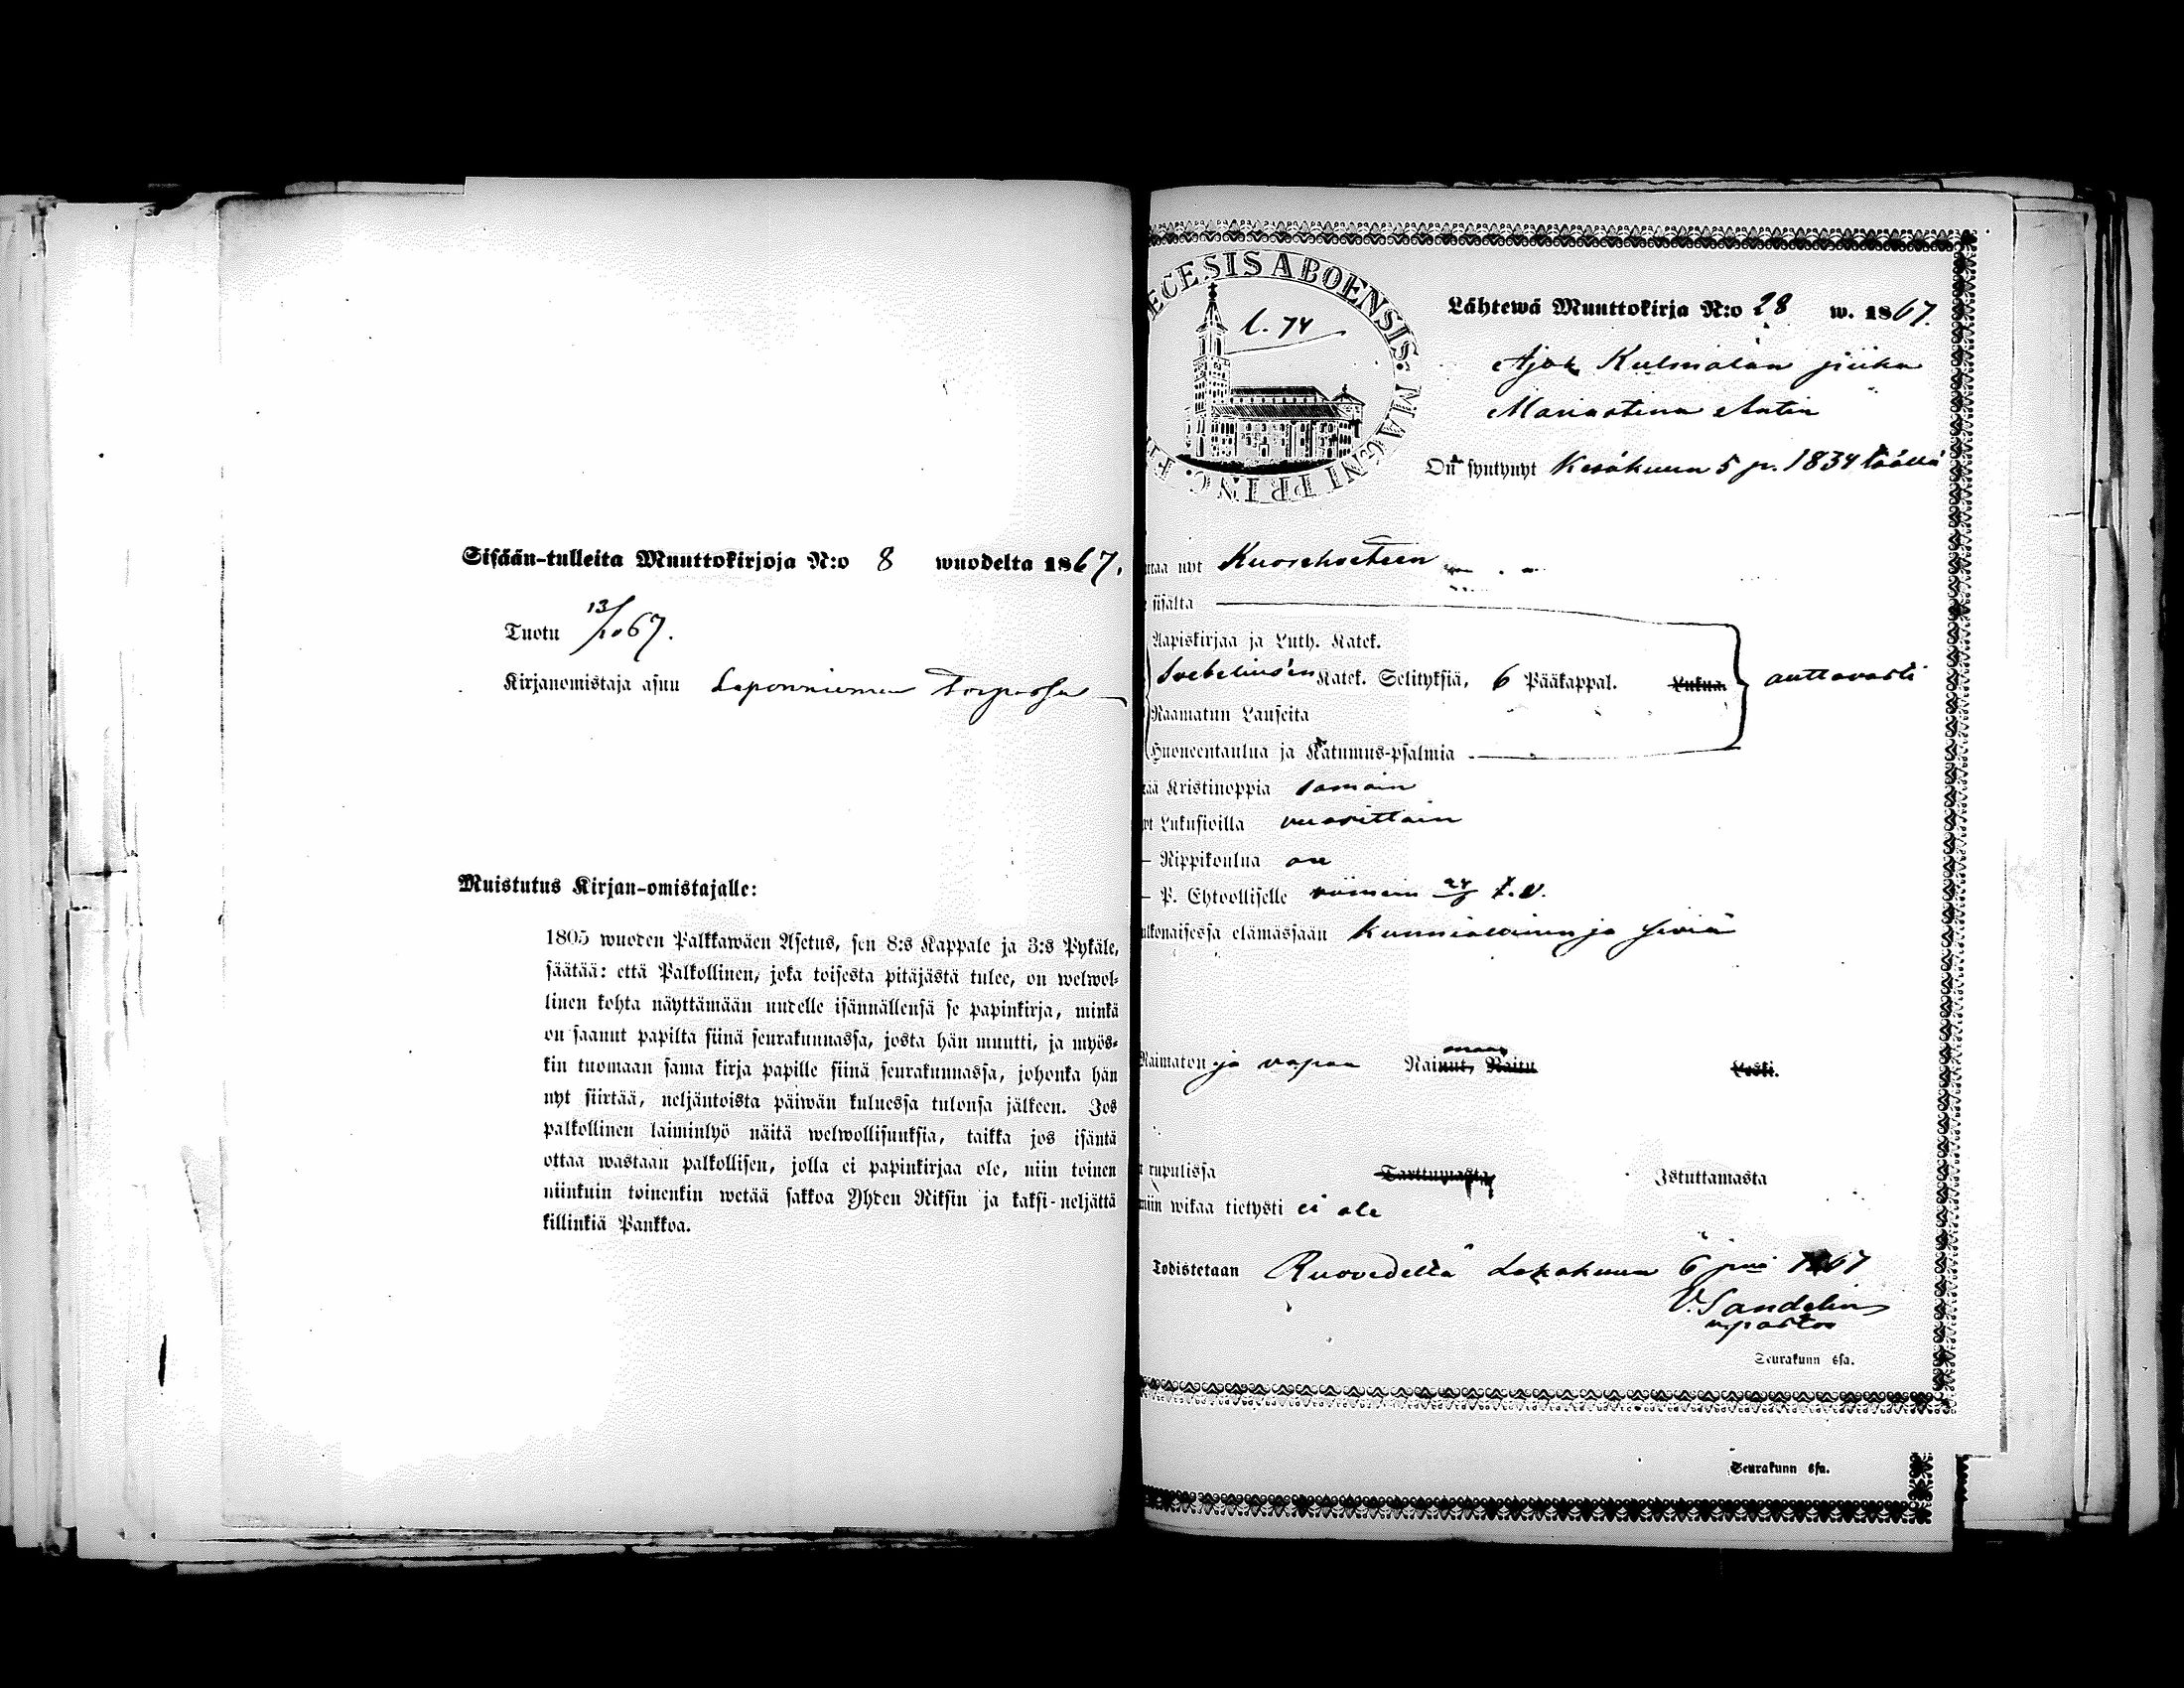 Sisään-tulleita Muuttokirjoja N:o 8 wuodelta 1867.
Tuotu 13/10 67.
Kirjanomistaja asuu Laponniemen Torpassa
Muistutus Kirjan-omistajalle:
1805 wuoden Palkkawäen Asetus, sen 8:s Kappale ja 3:s Pykäle,
säätää: että Palkollinen, joka toisesta pitäjästä tulee, on welwol-
linen kohta näyttämään uudelle isännällensä se papinkirja, minkä
on saanut papilta siinä seurakunnassa, josta hän muutti, ja myös-
kin tuomaan sama kirja papille siinä seurakunnassa, johonka hän
nyt siirtää, neljäntoista päiwän kuluessa tulonsa jälkeen. Jos
palkollinen laiminlyö näitä welwollisuuksia, taikka jos isäntä
ottaa wastaan palkollisen, jolla ei papinkirjaa ole, niin toinen
niinkuin toinenkin wetää sakkoa Yhden Riksin ja kaksi-neljättä
killinkiä Pankkoa.
ECESIS ABOENSIS. MAGNI PRINC. FI
l. 74
Lähtewä Muuttokirja N:o 28 w. 1867.
Kulmalan piika
Mariastina Antin
On syntynyt Kesäkuun 5 p. 1834 täällä
maa nyt Kuorehveteen
sisältä
Aapiskirjaa ja Luth. Katek.
Svebeliusen Katek. Selityksiä, 6 Pääkappal. Lukua auttavasti
Raamatun Lauseita
Huoneentaulua ja Katumus-psalmia
tää Kristinoppia samoin
Lukusioilla vuosittain
Rippikoulua on
P. Ehtoolliselle viimein t.v.
ulkonaisessa elämässään kunniallinen ja siviä
Naimaton ja vapaa Nainut, Naitu Leski.
rupulissa Tarttuvasta Istuttamasta
miin wikaa tietysti ei ole
Todistetaan Ruovedellä Lokakuun 6 pnä 1867
V. Sandelin
v. pastor
Seurakunn ssa.
Seurakunn ssa.